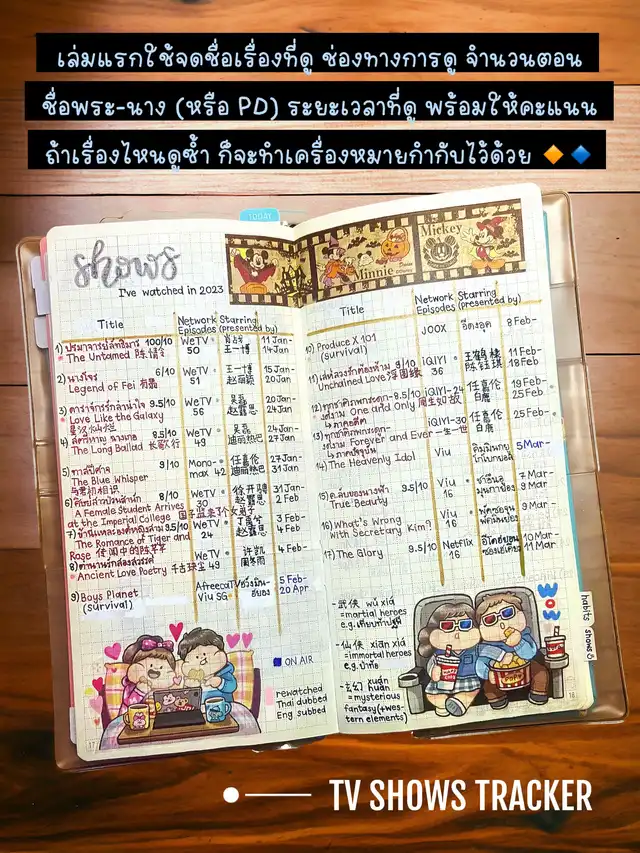 เล่มแรกใช้จดชื่อเรื่องที่ดู ช่องทางการดู จำนวนตอน
ชื่อพระ-นาง (หรือ PD) ระยะเวลาที่ดู พร้อมให้คะแนน
ถ้าเรื่องไหนดูซ้ำ ก็จะทำเครื่องหมายกำกับไว้ด้วย
TODAY
shows
I've watched in 2023
Title Network Episodes Starring (presented by)
1) ปรมาจารย์ลัทธิมาร 100/10 WeTV 肖战 11 Jan-
The Untamed 陈情令 50 王一博 14 Jan
2) นางโจร 6/10 WeTV 王一博 15 Jan-
Legend of Fei 有翡 51 赵丽颖 20 Jan
3) ดาราจักรรักลำนำใจ 9.5/10 WeTV 吴磊 20 Jan-
Love Like the Galaxy 56 赵露思 24 Jan
星汉灿烂
4) สตรีหาญ ฉางเกอ 9.5/10 WeTV 吴磊 24 Jan-
The Long Ballad 长歌行 49 迪丽热巴 27 Jan
5) กาลปีศาจ 9/10 Mono- 任嘉伦 27 Jan-
The Blue Whisper max 42 迪丽热巴 31 Jan
与君初相识
6) ศิษย์สาวป่วนสำนัก 8/10 WeTV 徐开骋 31 Jan-
A Female Student Arrives 30 赵露思 2 Feb
at the Imperial College 国子监来了个女弟子
7) 9.5/10 WeTV 丁禹兮 3 Feb-
The Romance of Tiger and 24 赵露思 4 Feb
Rose 传闻中的陈芊芊
8) ตำนานรักสองสวรรค์ WeTV 许凯 4 Feb-
Ancient Love Poetry 千古玦尘 49 周冬雨
9) Boys Planet AfreecaTV 5 Feb-
(survival) Viu SG 20 Apr
ON AIR
rewatched
Thai dubbed
Eng subbed
17
Minnie
Mickey
Title Network Episodes Starring (presented by)
10) Produce X 101 JOOX อีดงอุค 8 Feb-
(survival)
11) 9/10 iQIYI 王鹤棣 11 Feb-
Unchained Love 浮图缘 36 陈钰琪 18 Feb
12) ทุกชาติภพกระดูก- 9.5/10 iQIYI-24 任嘉伦 19 Feb-
งดงาม One and Only 周生如故 白鹿 25 Feb
~ภาคอดีต
13) ทุกชาติภพกระดูก- iQIYI-30 任嘉伦 25 Feb-
งดงาม Forever and Ever 一生一世 白鹿
~ภาคปัจจุบัน
14) The Heavenly Idol Viu คิมมินกยู 5 Mar-
โกโบกยอล
15) 9.5/10 Viu ชาอึนอู 7 Mar-
True Beauty 16 มุนกายอง 9 Mar
16) What's Wrong Viu พัคซอจุน 9 Mar-
with Secretary Kim? 16 พัคมินยอง
17) The Glory 9.5/10 Netflix 10 Mar-
16 ซงเฮเคียว 11 Mar
- 武侠 wǔ xiá
=martial heroes
e.g.
- 仙侠 xiān xiá
=immortal heroes
e.g.
- 玄幻 xuán huàn
=mysterious
fantasy(+wes-
tern elements)
WOW
habits
shows
18
TV SHOWS TRACKER